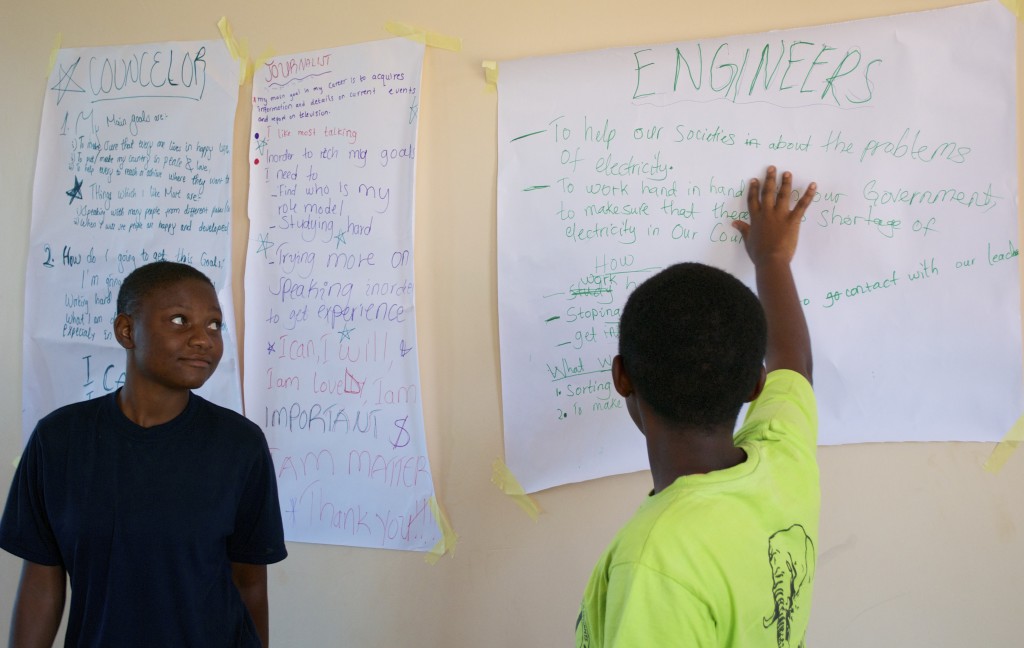 COUNCELOR
1. My Main goals are:-
i) To make sure that every one lives in happy
ii) To put/make my country in peace & love.
iii) To help every to reach or achive where they want to
Things which I like More are:-
i) Speaking with many people from different
2. How do I going to get this Goals?
I'm going
Writing hard
What I am
Especialy in
I CA
JOURNALIST
My main goal in my career is to acquires
information and details on current events
and report on television.
I like most talking
Inorder to rech my goals
I need to
- Find who is my
role model
- Studying hard
- Trying more on
Speaking inorder
to get experience
I can, I will,
I am loved, I am
IMPORTANT $
I AM MATTER
Thank you!!
ENGINEERS
- To help our societies in about the problems
of electricity.
- To work hand in hand our Government,
to makesure that shortage of
electricity in Our
How
- study work
- Stoping to go contact with our
- get
What
1. Sorting
2. To make